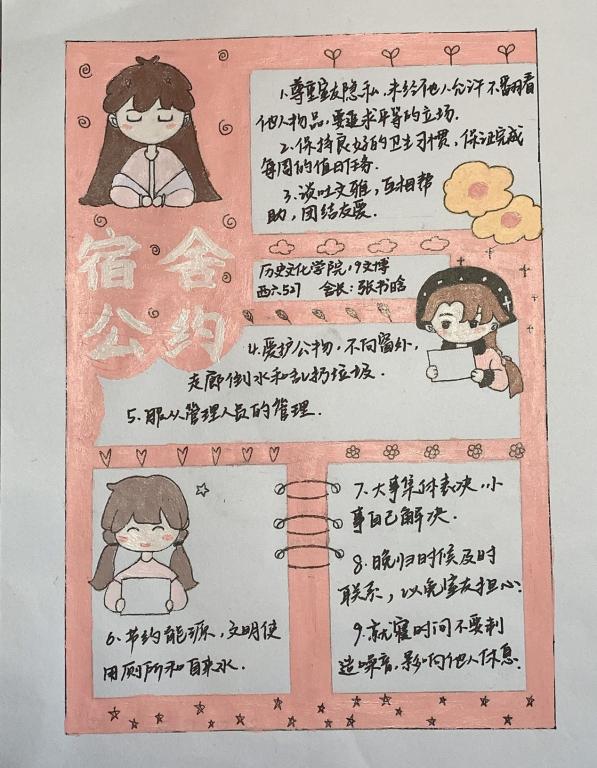 宿舍
公约
1.尊重室友隐私,未经他人允许不翻看
他人物品,要追求平等的立场.
2.保持良好的卫生习惯,保证完成
每周的值日任务.
3.谈吐文雅,互相帮
助,团结友爱.
历史文化学院,19文博
西六527 舍长:张书晗
4.爱护公物,不向窗外,
走廊倒水和乱扔垃圾.
5.服从管理人员的管理.
6.节约能源,文明使
用厕所和自来水.
7.大事集体表决,小
事自己解决.
8.晚归时候及时
联系,以免室友担心.
9.就寝时间不要制
造噪音,影响他人休息.